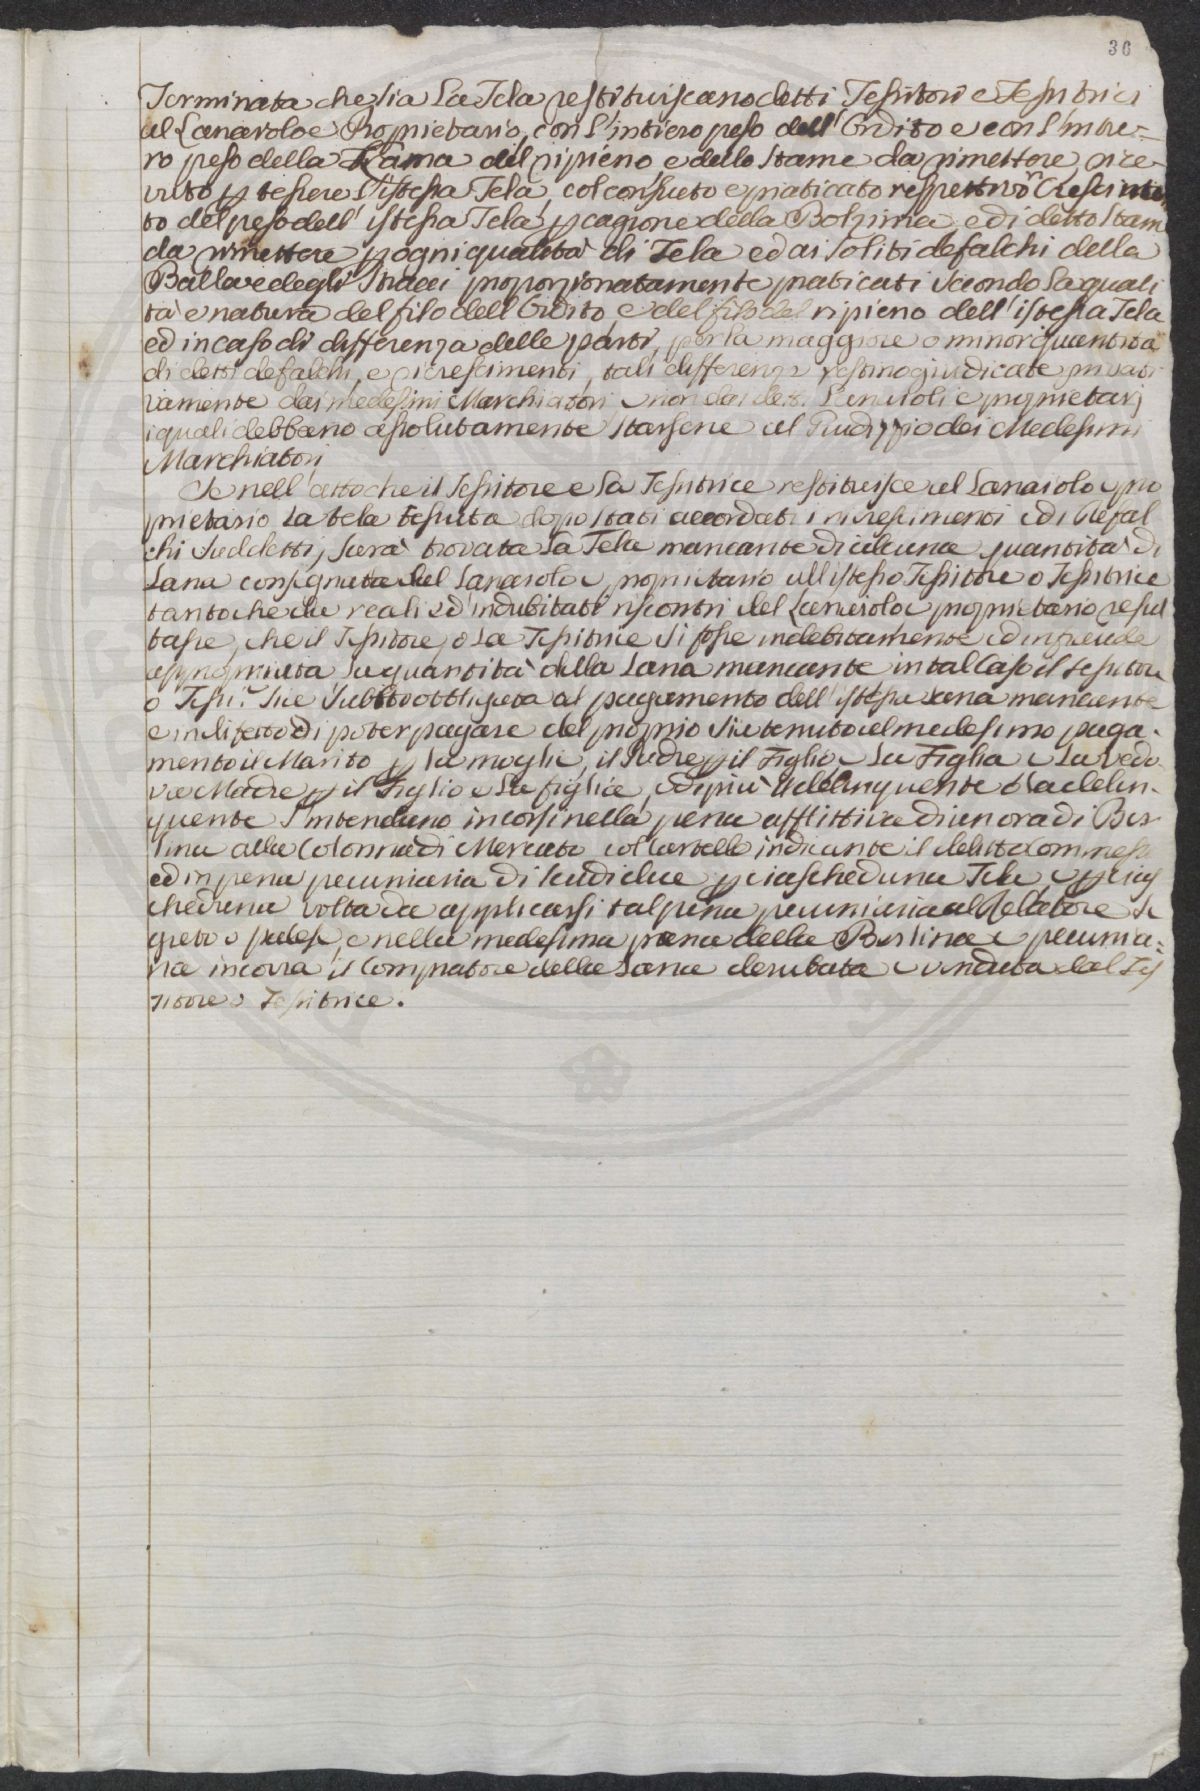 36
Terminata che sia La Tela restituiscano detti Tessitori e Tessitrici
al Lanaiolo e Proprietario, con l'intiero peso dell'Ordito e con l'intie=
ro peso della Trama del ripieno e dello stame da rimettere rice-
vuto p tessere l'istessa Tela, col consueto e praticato respettivo Crescimen
to del peso dell'istessa Tela p cagione della Bozzima, e di detto stame
da rimettere p ogni qualità di Tela ed ai soliti defalchi della
Balla e degli Stracci proporzionatamente praticati secondo la quali
tà e natura del filo dell'Ordito, e del filo del ripieno dell'istessa Tela
ed in caso di differenza delle parti, per la maggiore o minor quantità
di detti defalchi, e ricrescimenti, tali differenze restino giudicate privati
vamente dai medesimi Marchiatori e non dai dett. Lanaioli e proprietarj
i quali debbano assolutamente starsene al Giudizzio dei Medesimi
Marchiatori
Se nell'atto che il Tessitore e la Tessitrice restituisce al Lanaiolo e pro
prietario la tela tessuta dopo stati accordati i ricrescimenti ed i defal
chi suddetti, sarà trovata la Tela mancante di alcuna quantità di
Lana consegnata dal Lanaiolo e proprietario all'istesso Tessitore o Tessitrice
tanto che da reali ed indubitati riscontri del Lanaiolo e proprietario resul
tasse, che il Tessitore, o La Tessitrice si fosse indebitamente ed in fraude
appropriata la quantità della Lana mancante in tal Caso il tessitore
o Tess.ce sia subbito obbligata al pagamento dell'istessa Lana mancante
e in difetto di poter pagare del proprio sia tenuto al medesimo paga-
mento il Marito p la moglie, il Padre p il Figlio e La Figlia e La vedo
va Madre p il Figlio e La figlia, e di più il delinquente o la delin-
quente s'intendano incorsi nella pena afflittiva di un ora di Ber
lina alla Colonna di Mercato col Cartello indicante il delitto Commesso
ed in pena pecuniaria di scudi due p ciascheduna Tela, e p cias
cheduna volta da applicarsi tal pena pecuniaria al Delatore se
greto o palese, e nella medesima pena della Berlina e pecunia=
ria incorra il Compratore della Lana derubata e venduta dal Tes
sitore o Tessitrice.